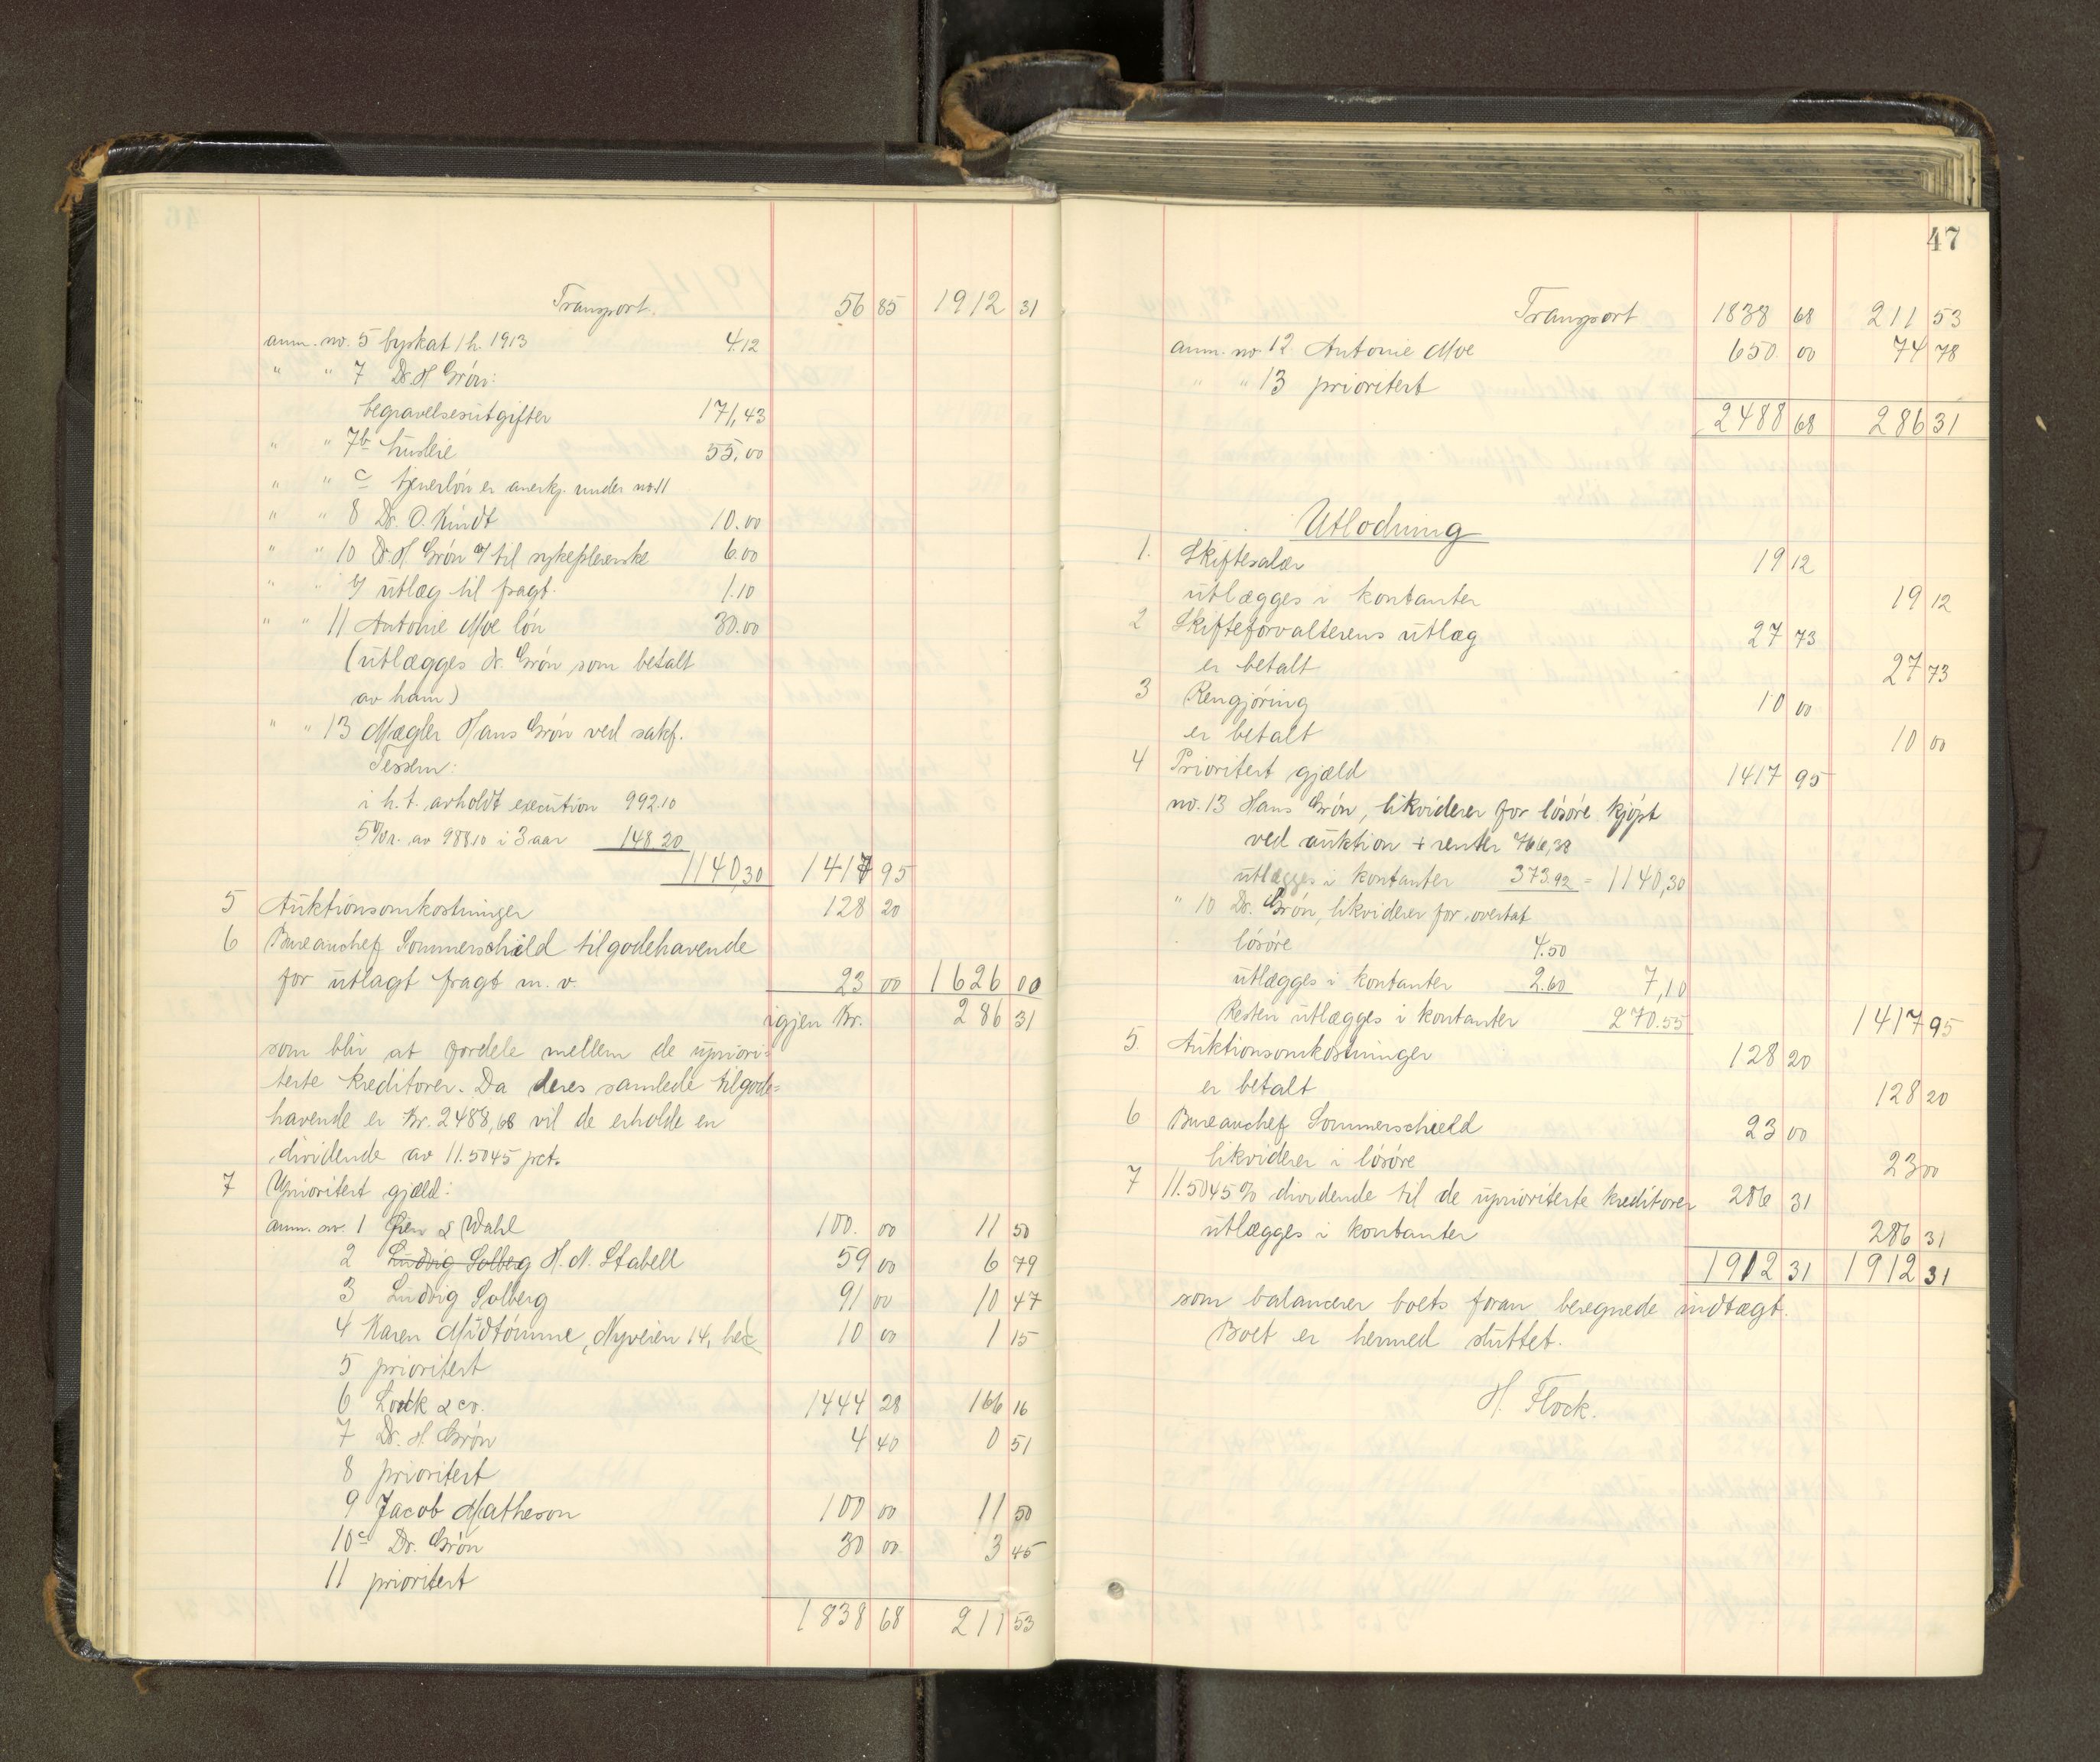 Transport. 56 85 1912 31
anm. no. 5 byskat 1 h. 1913 4.12
" " 7 Dr. H Grön:
begravelsesutgifter 171,43
" " 7b husleie 55,00
" " c tjenerlön er anerkj. under no. 11
" " 8 Dr. O. Kindt 10.00
" " 10 Dr. H Grön a/ til sykepleierske 6.00
" " b/ utlæg til fragt. 1.10
" " 11 Antonie Moe lön 30.00
(utlægges dr. Grön som betalt
av ham)
" " 13 Mægler Hans Grön ved sakf.
Tessem:
i h. t. avholdt execution 992.10
5% r. av 988.10 i 3 aar 148.20
1140,30 1417 95
5 Auktionsomkostninger 128 20
6 Bureauchef Sommerschild tilgodehavende
for utlagt fragt m. v. 23 00 1626 00
igjen Kr. 286 31
som blir at fordele mellem de upriori=
terte kreditorer. Da deres samlede tilgode=
havende er Kr. 2488,68 vil de erholde en
dividende av 11.5045 pct.
7 Uprioritert gjæld:
anm. nr. 1 Øien & Wahl 100. 00 11 50
2 Ludvig Solberg H. M. Stabell 59 00 6 79
3 Ludvig Solberg 91 00 10 47
4 Karen Midtömme, Nyveien 14, her 10 00 1 15
5 prioritert
6 Lock & co. 1444 28 166 16
7 Dr. H. Grön 4 40 0 51
8 prioritert
9 Jacob Matheson 100 00 11 50
10c Dr. Grön 30 00 3 45
11 prioritert
1838 68 211 53
47
Transport 1838 68 211 53
anm. no. 12 Antonie Moe 650. 00 74 78
" " 13 prioritert
2488 68 286 31
Utlodning
1. Skiftesalær 19 12
utlægges i kontanter 19 12
2 Skifteforvalterens utlæg 27 73
er betalt 27 73
3 Rengjöring 10 00
er betalt 10 00
4 Prioritert gjæld 1417 95
no. 13 Hans Grön, likviderer for lösöre kjöpt
ved auktion + renter 766,38
utlægges i kontanter 373.92 = 1140,30
" 10 Dr. Grön, likviderer for overtat
lösöre 4.50
utlægges i kontanter 2.60 7,10
Resten utlægges i kontanter 270.55 1417 95
5. Auktionsomkostninger 128 20
er betalt 128 20
6 Bureauchef Sommerschield 23 00
likviderer i lösöre 23 00
7 11.5045% dividende til de uprioriterte kreditorer 286 31
utlægges i kontanter 286 31
1912 31 1912 31
som balancerer boets foran beregnede indtægt.
Boet er hermed sluttet.
H. Flock.